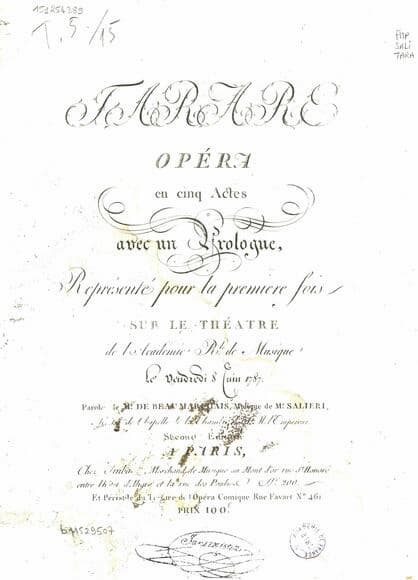 T.5/15
TARARE
OPÉRA
en cinq Actes
avec un Prologue,
Représenté pour la première fois
SUR LE THÉATRE
de l'Académie Rle. de Musique
le Vendredi 8 Juin 1787.
Parole de Mr. DE BEAUMARCHAIS, Musique de Mr. SALIERI,
de Chapelle et de la Chambre de l'Empereur
Second Edition
A PARIS,
Chez Imbault Marchand de Musique au Mont d'or rue St. Honoré
entre l'Hôtel d'Aligre et la rue des Poulies No. 200
Et Péristile du Théatre de l'Opéra Comique Rue Favart No. 461
PRIX 100
b11529507